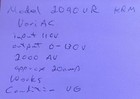 Model 2090VR HBM
VariAC
input 110V
output 0-130V
3000 AV
approx 20amp
Works
Condition VG